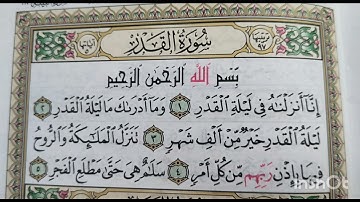 سُورَةُ الْقَدْرِ
بِسْمِ اللَّهِ الرَّحْمَٰنِ الرَّحِيمِ
إِنَّا أَنْزَلْنَاهُ فِي لَيْلَةِ الْقَدْرِ ١ وَمَا أَدْرَاكَ مَا لَيْلَةُ الْقَدْرِ ٢
لَيْلَةُ الْقَدْرِ خَيْرٌ مِّنْ أَلْفِ شَهْرٍ ٣ تَنَزَّلُ الْمَلَائِكَةُ وَالرُّوحُ
فِيهَا بِإِذْنِ رَبِّهِم مِّن كُلِّ أَمْرٍ ٤ سَلَامٌ هِيَ حَتَّىٰ مَطْلَعِ الْفَجْرِ ٥
InShot